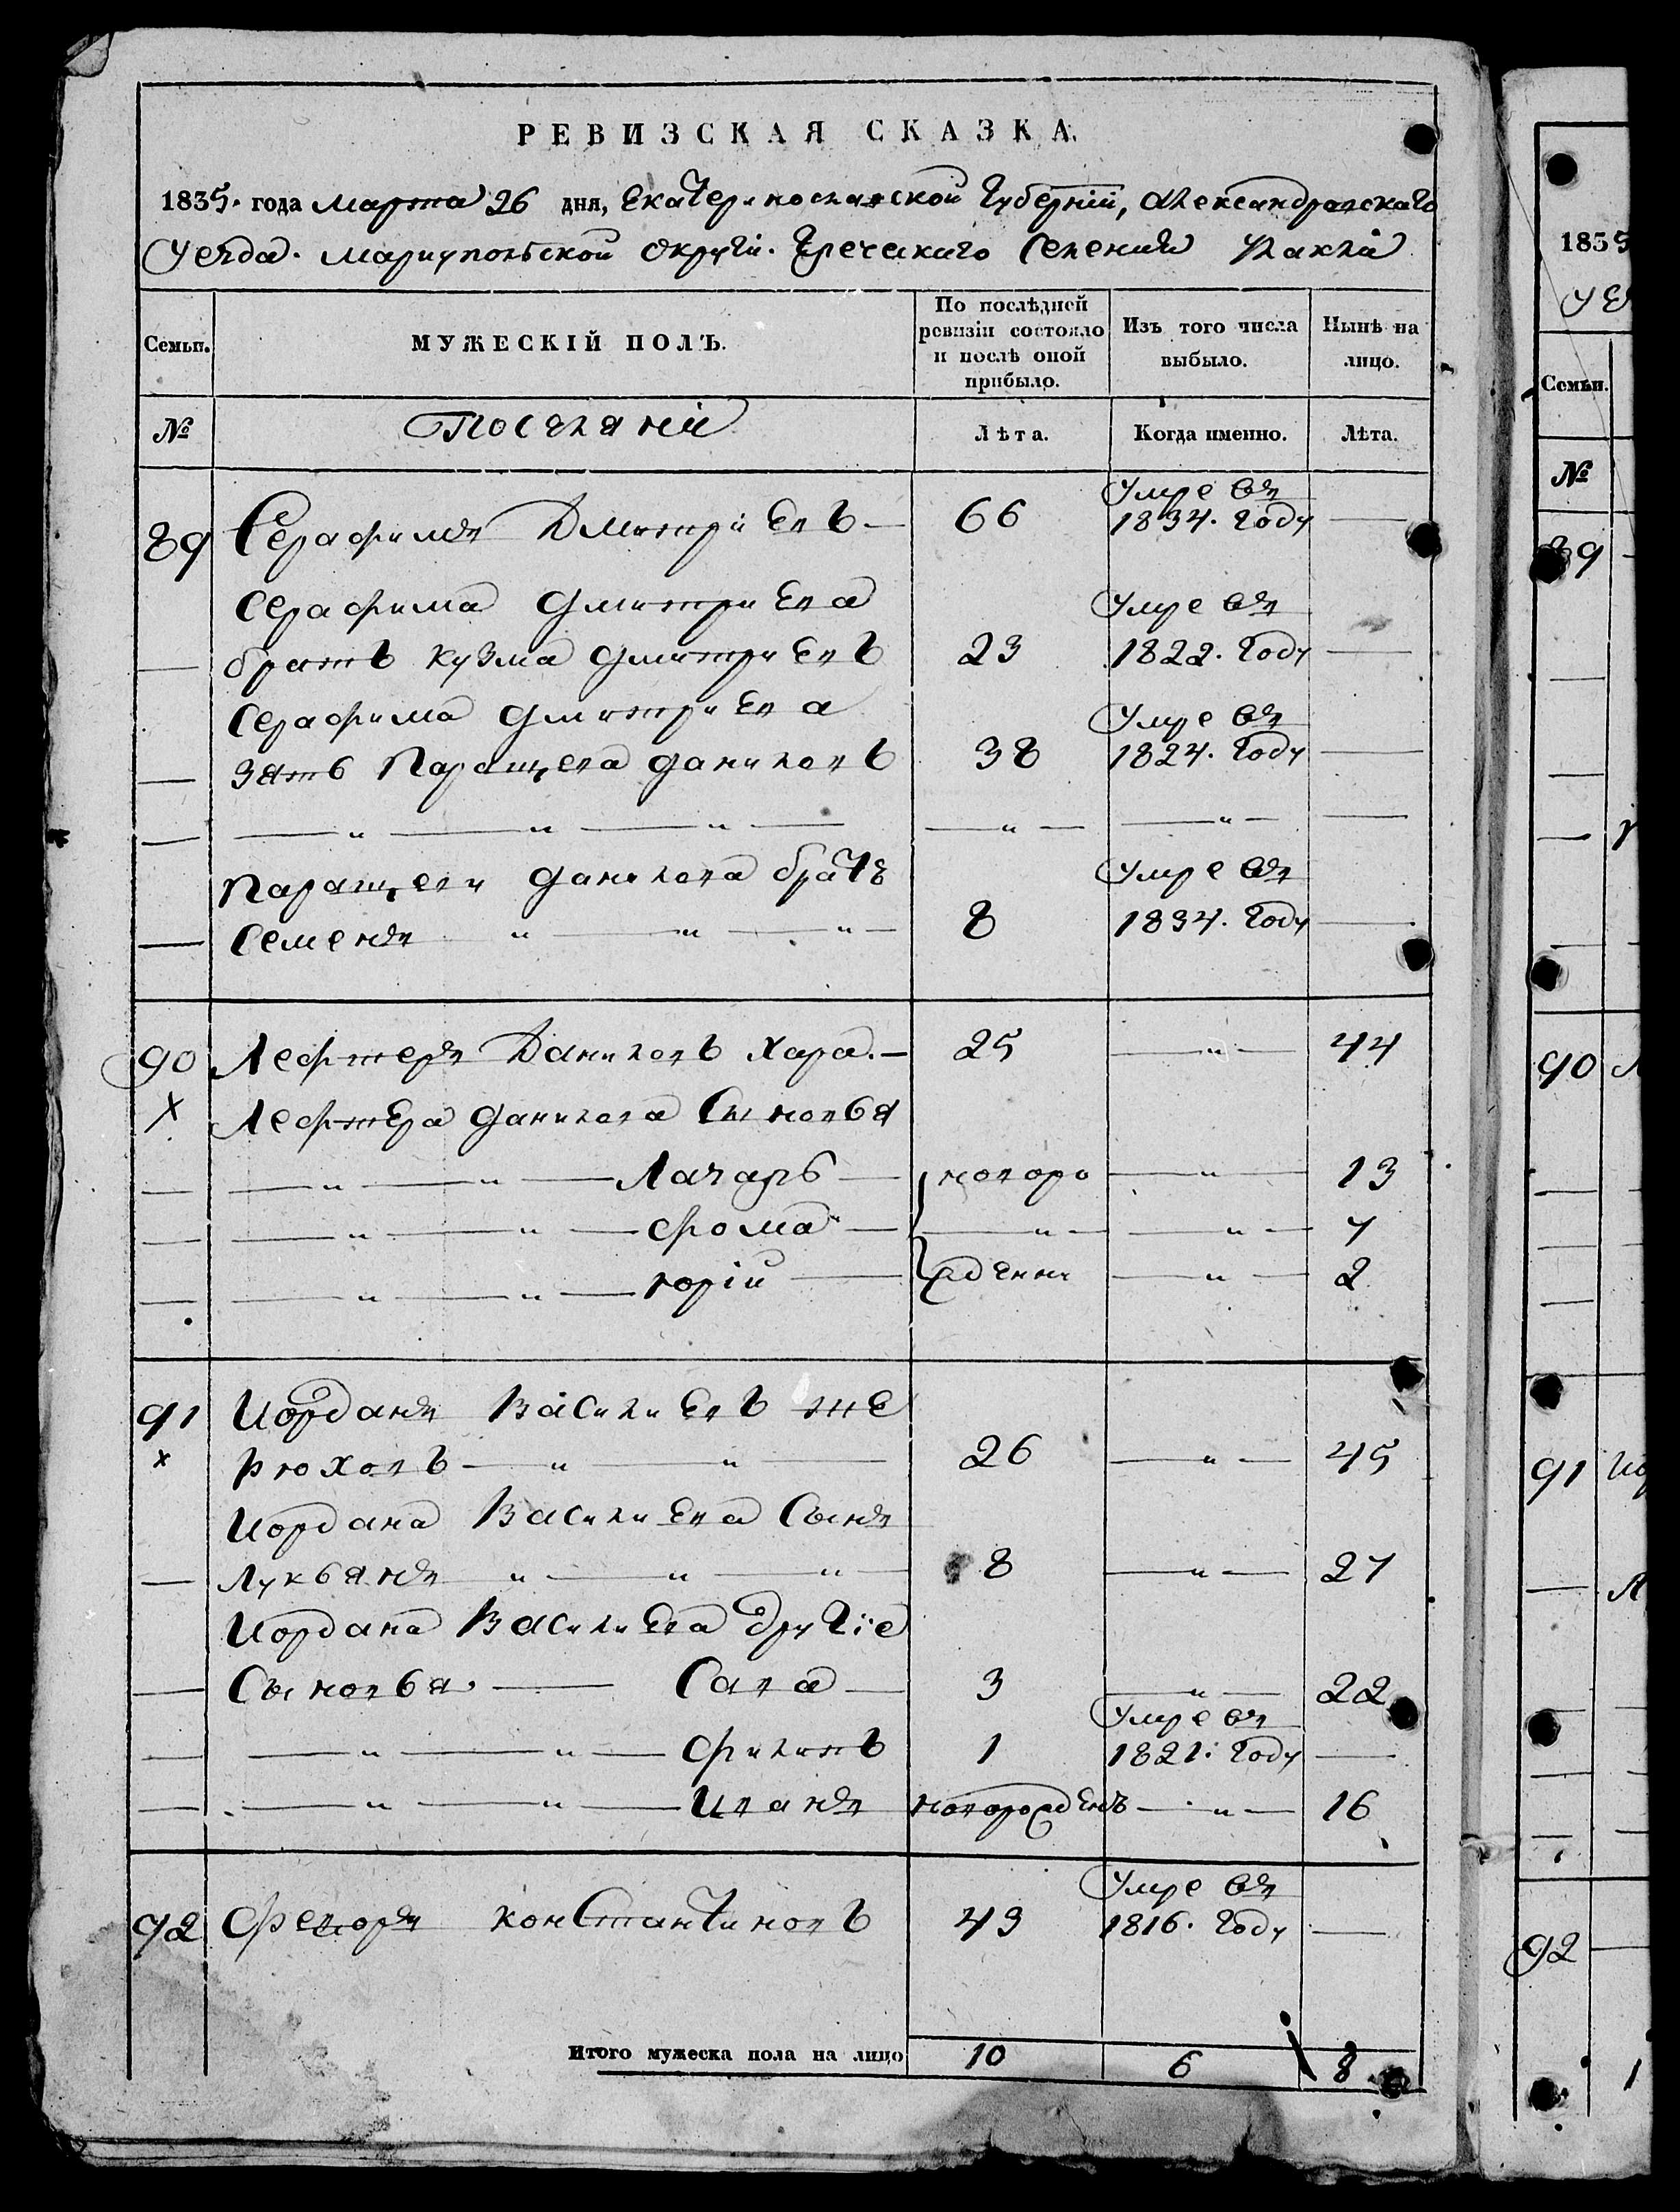 РЕВИЗСКАЯ СКАЗКА.
1835. года марта 26 дня, Екатеринославской Губерніи, Александравскаго
уезда. мариупольской округи. Греческаго Селения
Семьи.
МУЖЕСКІЙ ПОЛЪ.
По послѣдней ревизіи состояло и послѣ оной прибыло.
Изъ того числа выбыло.
Нынѣ на лицо.
№
Поселяни
Лѣта.
Когда именно.
Лѣта.
89 Серафимъ Дмитриевъ — 66 Умре въ 1834. году —
Серафима Дмитриева
— братъ кузма Дмитриевъ 23 Умре въ 1822. году —
Серафима Дмитриева
— зять Паращева Даниловъ 38 Умре въ 1824. году —
— — " — " — " — — " — — " — —
Паращеви Данилова братъ
— Семенъ " — " — " — 8 Умре въ 1834. году —
90 Лефтеръ Даниловъ Хара. — 25 — " — 44
х Лефтера Данилова Сыновья
— — " — " — Лазарь — новоро — " — 13
— — " — " — фома — — " — — " — 7
— — " — " — юрій — жденни — " — 2
91 Иорданъ Василиевъ же
х Рюховъ — " — " — 26 — " — 45
Иордана Василиева Сынъ
— Лукьянъ " — " — " — 8 — " — 27
Иордана Василиева другіе
— Сыновья. — Сава — 3 — " — 22
— — " — " — филипъ 1 Умре въ 1821. году —
— — " — " — Иванъ новорожденъ — " — 16
92 Федоръ константиновъ 43 Умре въ 1816. году —
Итого мужеска пола на лицо 10 6 8
1835
Семьи.
№
89
90
91
92